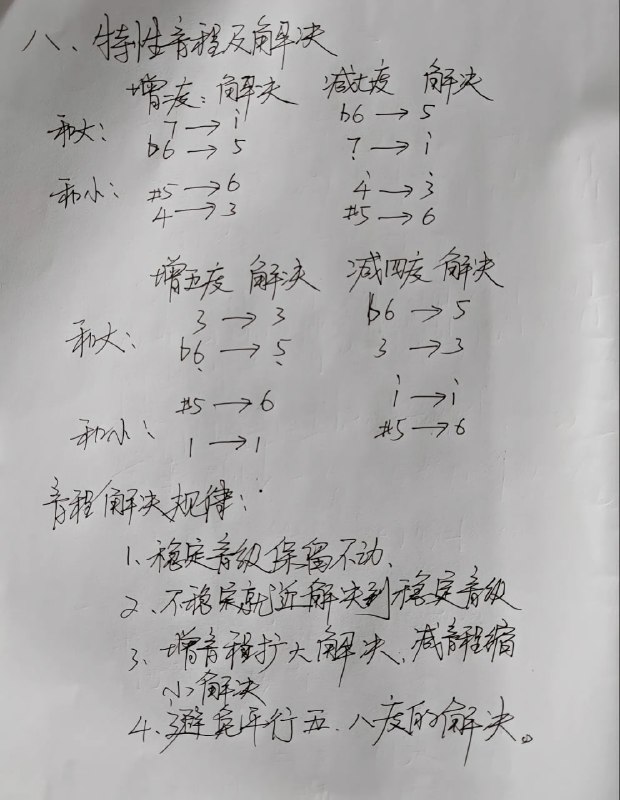 八、特性音程及解决
增二度: 解决 减七度 解决
和大: 7→i b6→5
b6→5 7→i
和小: #5→6 4→3
4→3 #5→6
增五度 解决 减四度 解决
和大: 3→3 b6→5
b6→5 3→3
和小: #5→6 i→i
1→1 #5→6
音程解决规律:
1、稳定音级保留不动、
2、不稳定就近解决到稳定音级
3、增音程扩大解决、减音程缩
小解决
4、避免平行五、八度的解决。